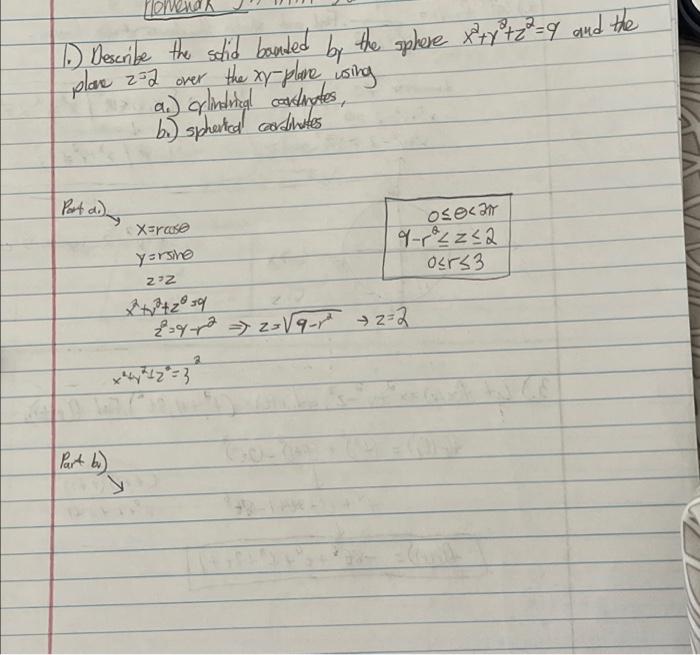 Homework
1.) Describe the solid bounded by the sphere x²+y²+z²=9 and the
plane z=2 over the xy-plane using
a.) cylindrical coordinates,
b.) spherical coordinates
Part a.)
x=rcosθ
y=rsinθ
z=z
x²+y²+z²=9
z²=9-r² ⇒ z=√9-r² → z=2
x²+y²+z²=3²
0≤θ<2π
9-r²≤z≤2
0≤r≤3
Part b.)